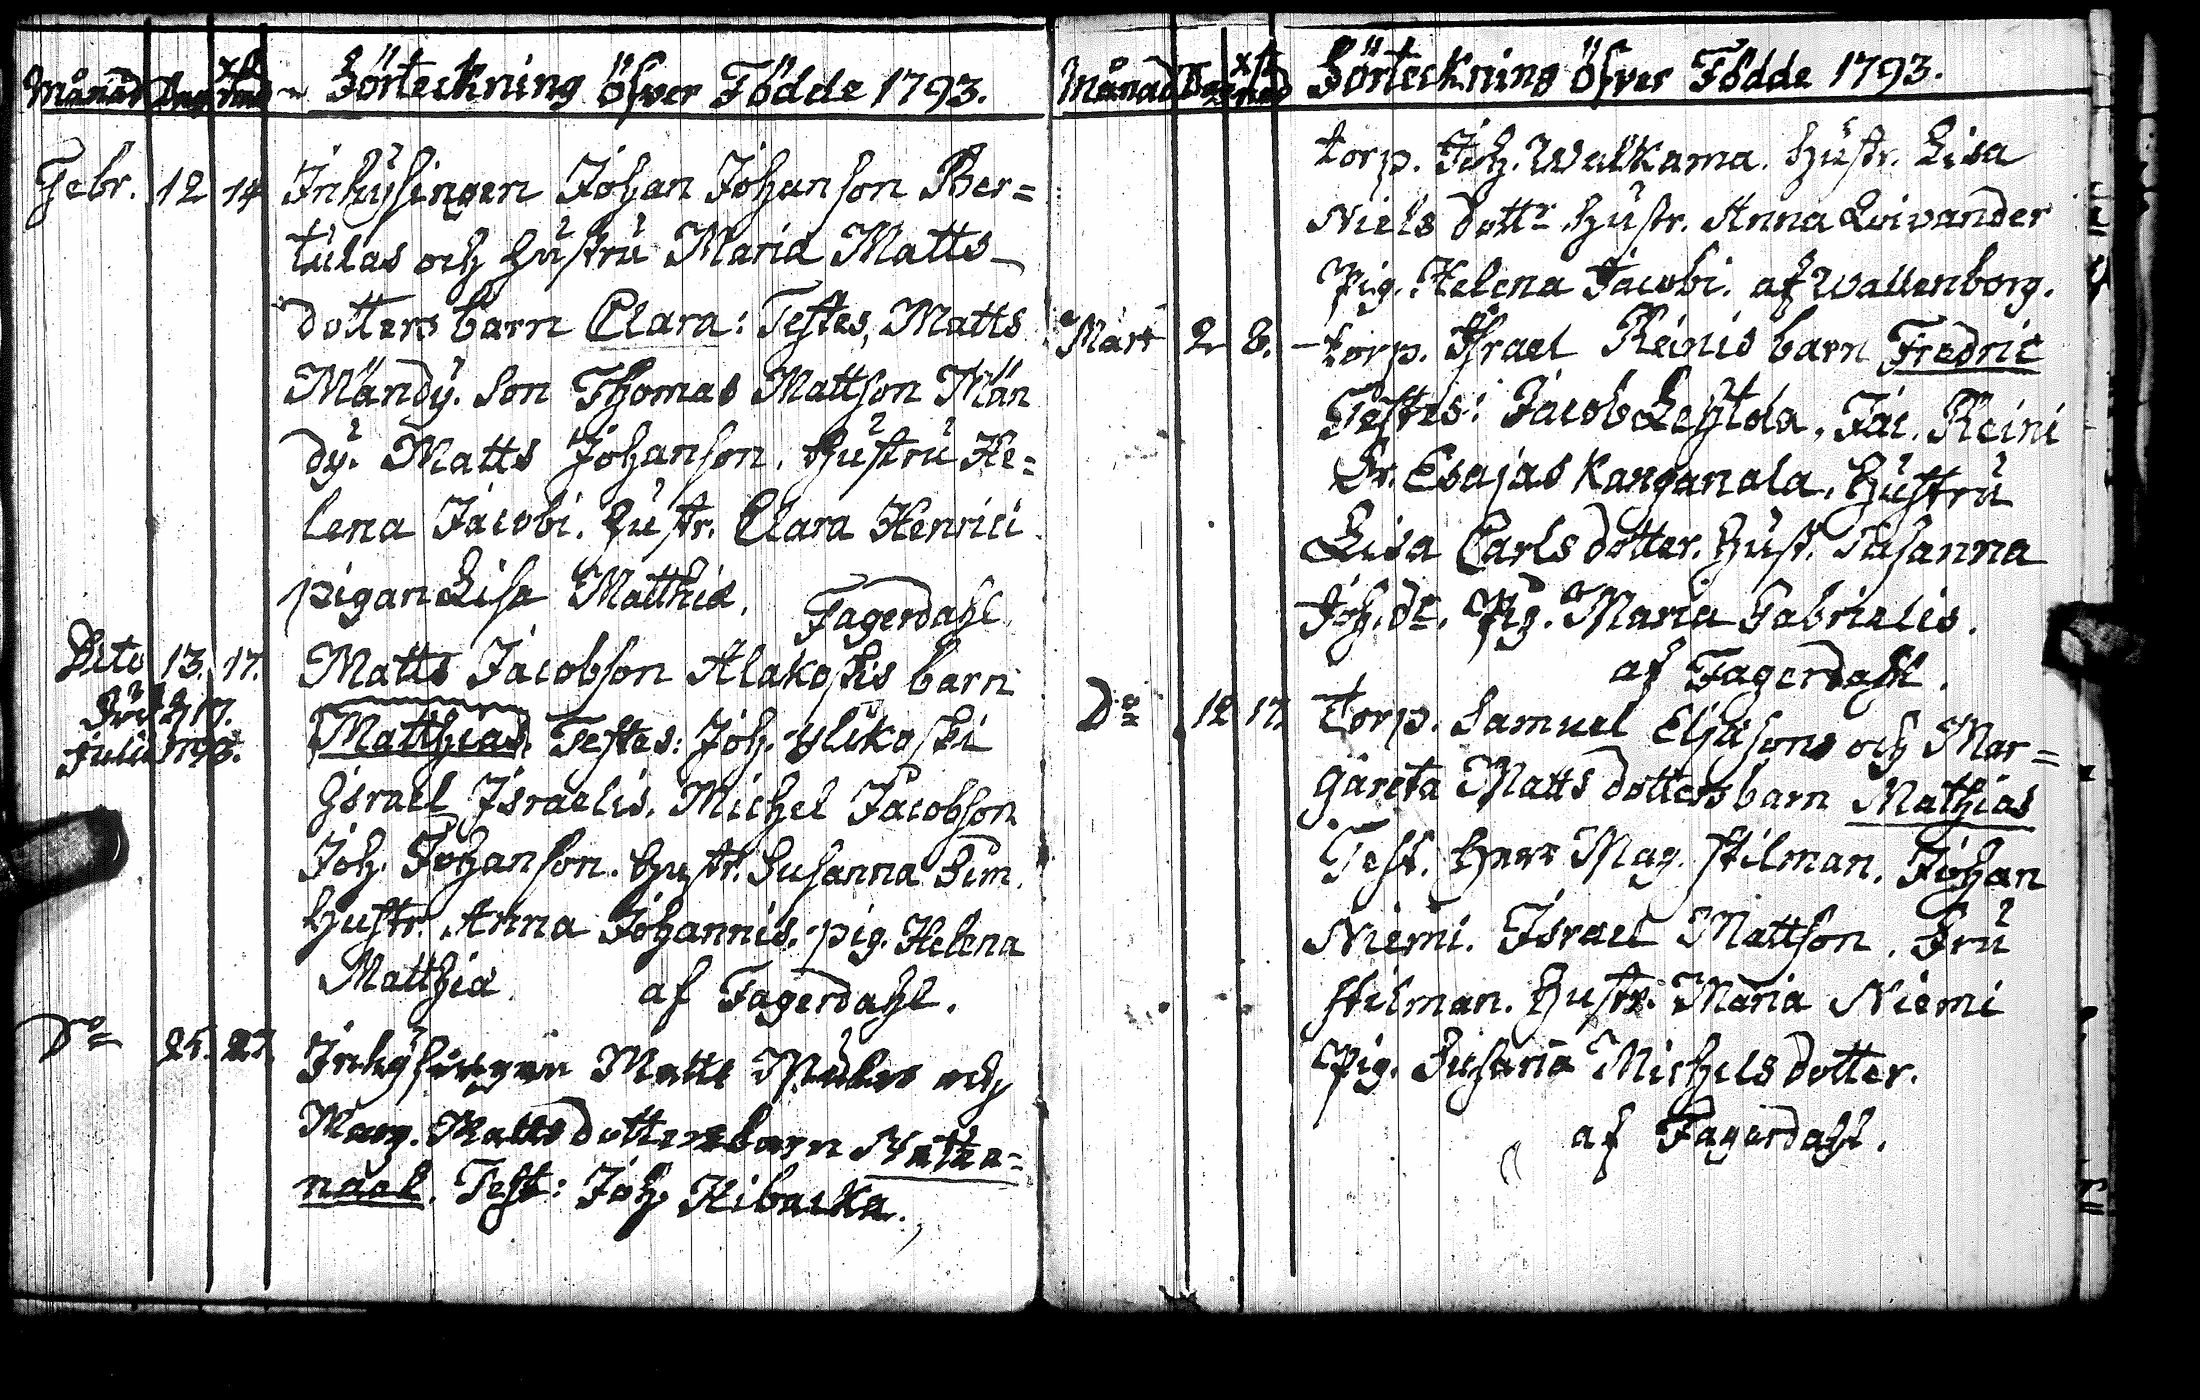 Månad Dag Xstnad Förteckning öfver Födde 1793.
Febr. 12 14 Inhysingen Johan Johanson Ber=
tulas och hustru Maria Matts
dotters barn Clara: Testes, Matts
Mändy. son Thomas Mattson Män
dy. Matts Johanson. hustru He=
lena Jacobi. hustr. Clara Henrici
pigan Lisa Matthiæ. Fagerdahl
Dito 13. 17. Matts Jacobson Alakoskis barn
Död d. 17. Matthias. Testes: Joh. Ylikoski
Julii 1793.
Israel Israelis. Michel Jacobson
Joh. Johanson. hustr. Susanna Sim.
hustr. Anna Johannis. pig. Helena
Matthiæ. af Fagerdahl.
Do 25. 27. Inhysingen Matts och
Marg. Mattsdotters barn Natha=
naël. Test: Joh. Kibacka.
Månad Dag Xstnad Förteckning öfver Födde 1793.
torp. Joh. Walkama. hustr. Lisa
Niels dottr hustr. Anna Loivander
Pig. Helena Jacobi. af Wallenborg.
Mart 2 8. torp. Israel Reinis barn Fredric
Testes: Jacob Lehtola, Jac. Reini
Sr. Esajas Kanganala. hustru
Lisa Carls dotter. hust. Susanna
Joh. dr. Pig. Maria Gabrielis.
af Fagerdahl.
Do 12 17. Torp. Samuel Eliasons och Mar=
gareta Matts dotters barn Mathias
Test. herr Mag. Stilman. Johan
Niemi. Israel Mattson. Fru
Stilman. hustr. Maria Niemi
Pig. Susanna Michels dotter.
af Fagerdahl.